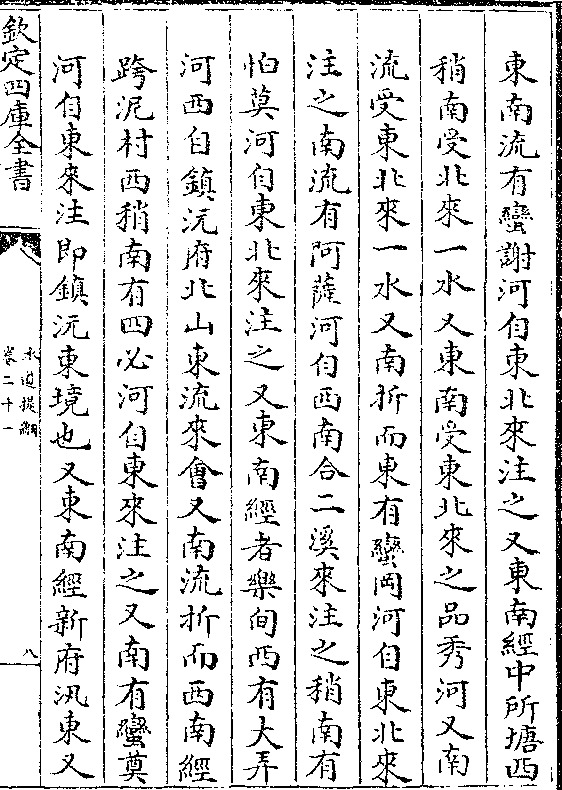 東南流有蠻謝河自東北來注之又東南經中所塘西
稍南受北來一水又東南受東北來之品秀河又南
流受東北來一水又南折而東有蠻岡河自東北來
注之南流有阿薩河自西南合二溪來注之稍南有
怕莫河自東北來注之又東南經者樂甸西有大弄
河西自鎮沅府北山東流來會又南流折而西南經
跨泥村西稍南有四必河自東來注之又南有蠻奠
河自東來注即鎮沅東境也又東南經新府汛東又
欽定四庫全書
水道提綱
卷二十一
八